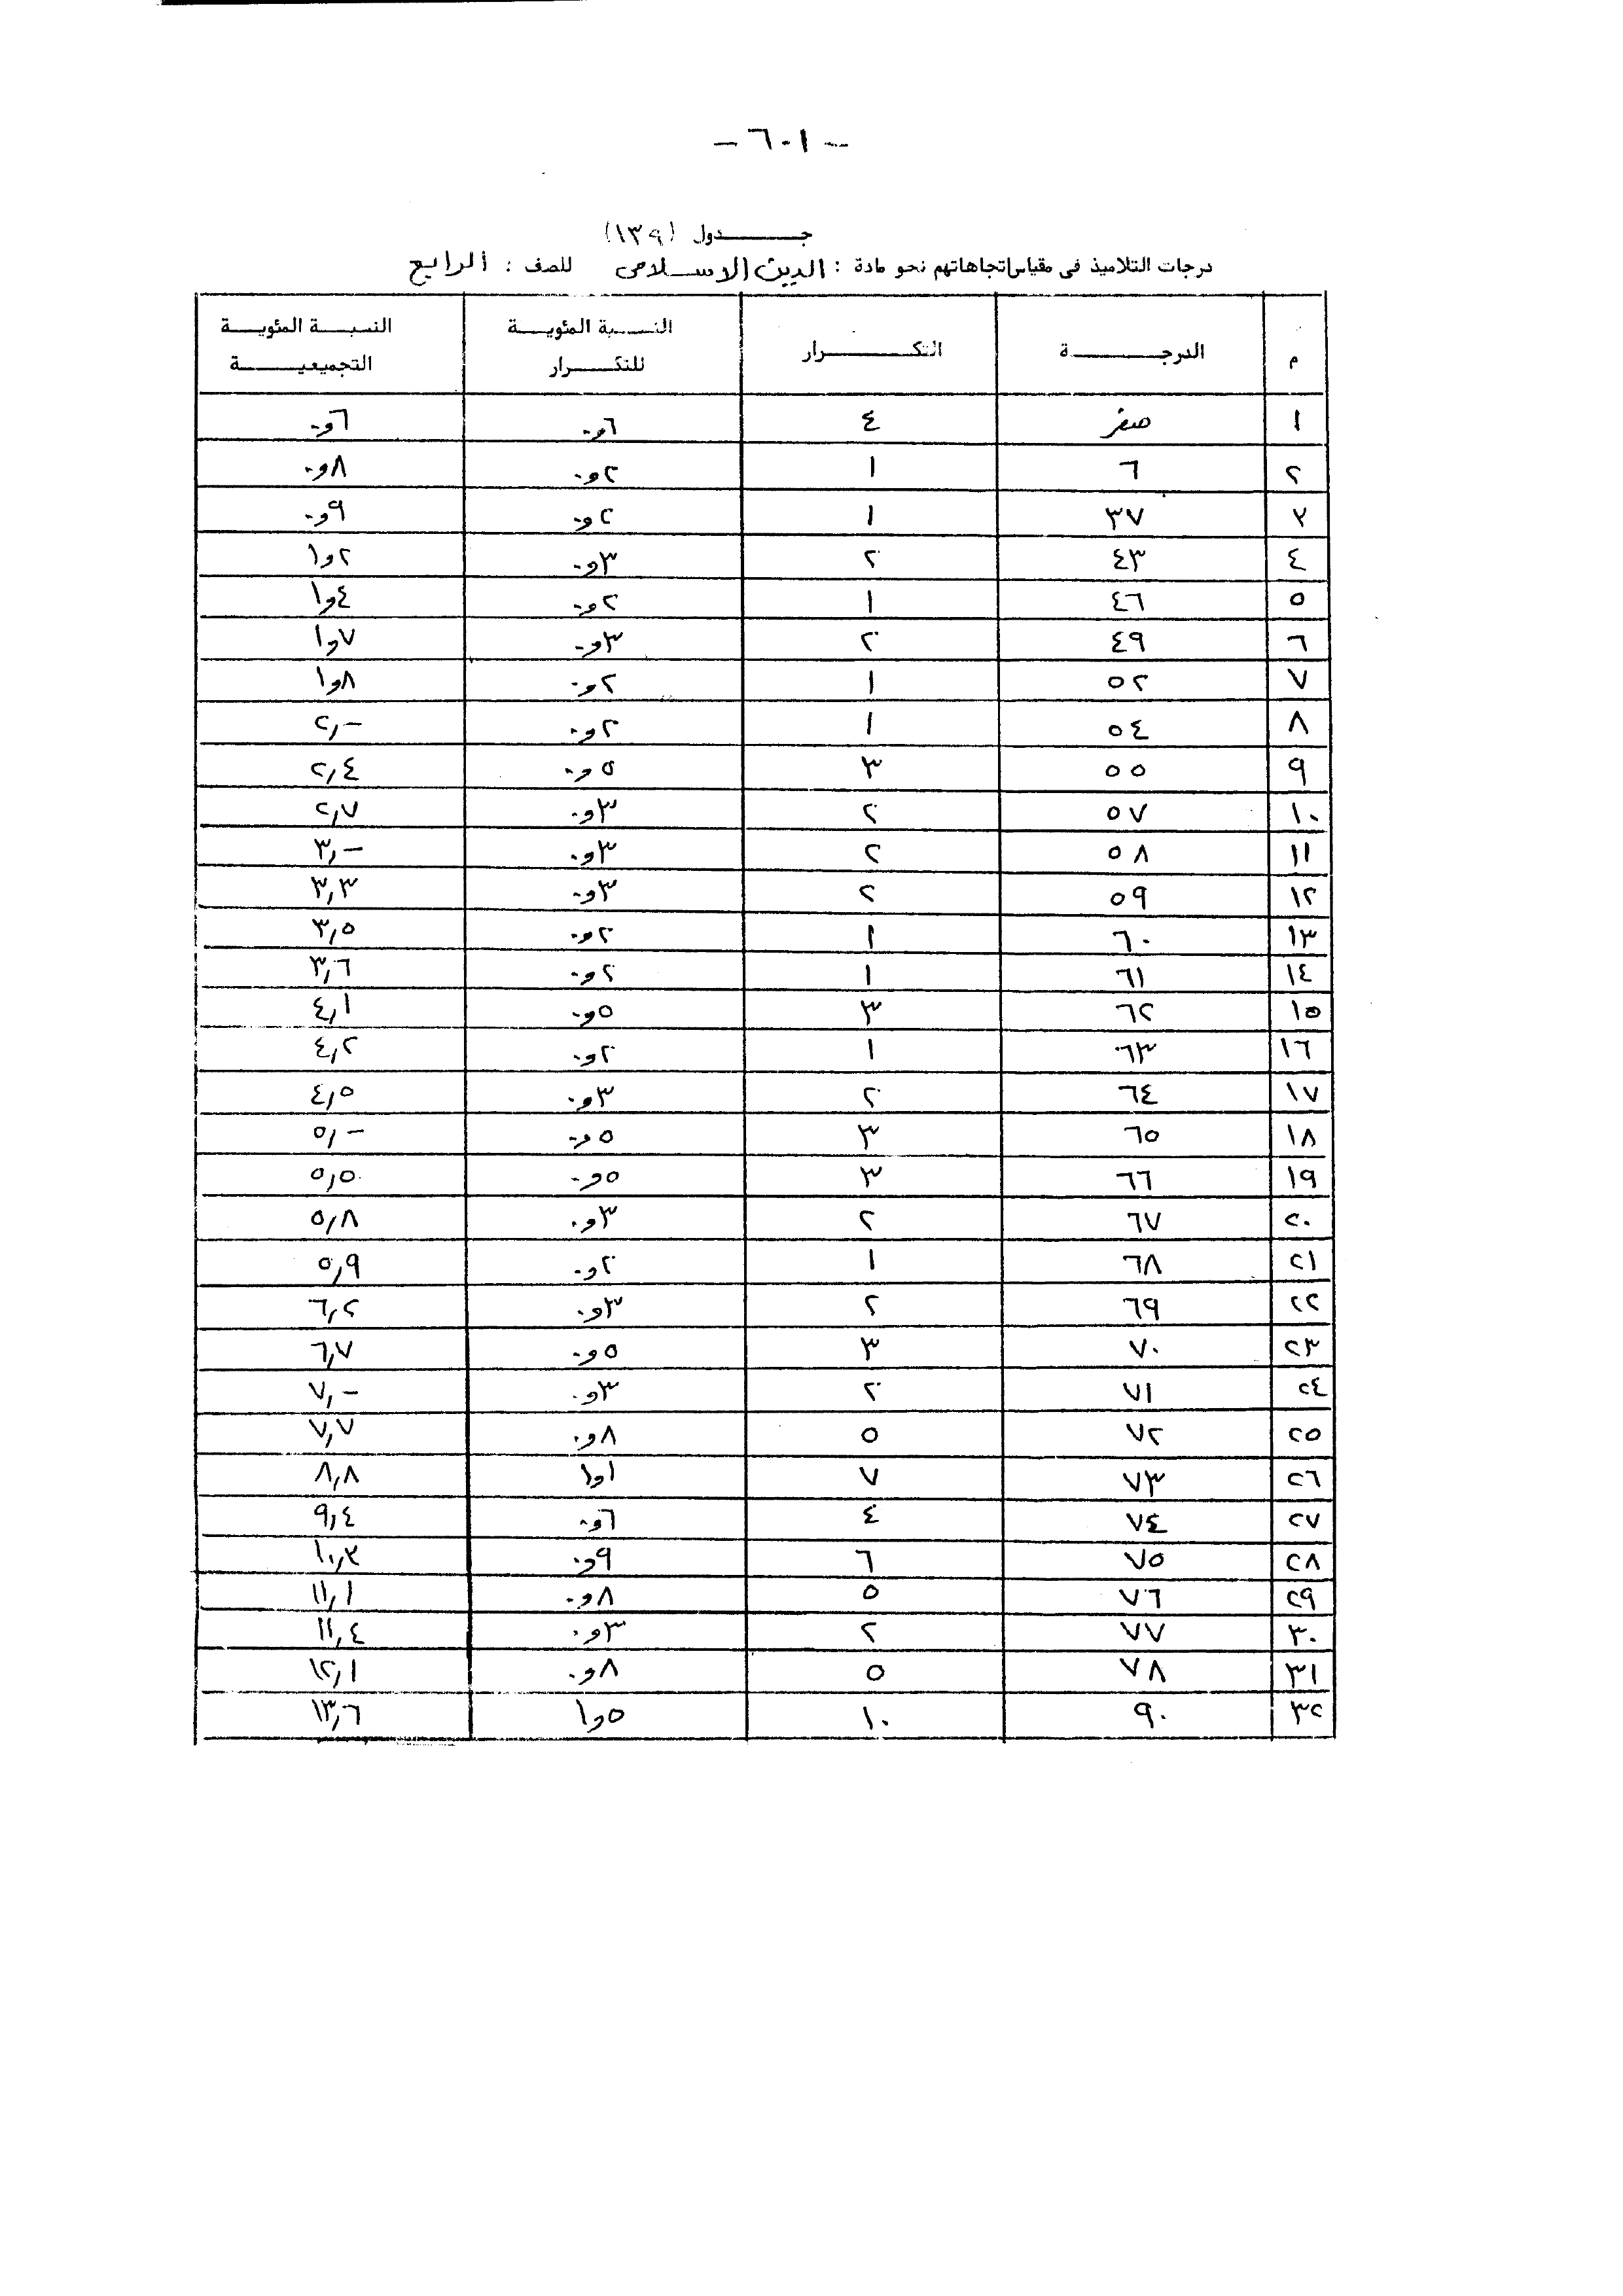 - ٦٠١ -
جـــدول (١٣٩)
درجات التلاميذ فى مقياس اتجاهاتهم نحو مادة : الدين الاسلامى للصف : الرابع
م الدرجـــة التكـــرار النسبة المئوية للتكـــرار النسبـة المئويـة التجميعيـة
١ صفر ٤ ٦و٠ ٦و٠
٢ ٦ ١ ٢و٠ ٨و٠
٣ ٣٧ ١ ٢و٠ ٩و٠
٤ ٤٣ ٢ ٣و٠ ٢و١
٥ ٤٦ ١ ٢و٠ ٤و١
٦ ٤٩ ٢ ٣و٠ ٧و١
٧ ٥٢ ١ ٢و٠ ٨و١
٨ ٥٤ ١ ٢و٠ ٢,-
٩ ٥٥ ٣ ٥و٠ ٢,٤
١٠ ٥٧ ٢ ٣و٠ ٢,٧
١١ ٥٨ ٢ ٣و٠ ٣,-
١٢ ٥٩ ٢ ٣و٠ ٣,٣
١٣ ٦٠ ١ ٢و٠ ٣,٥
١٤ ٦١ ١ ٢و٠ ٣,٦
١٥ ٦٢ ٣ ٥و٠ ٤,١
١٦ ٦٣ ١ ٢و٠ ٤,٢
١٧ ٦٤ ٢ ٣و٠ ٤,٥
١٨ ٦٥ ٣ ٥و٠ ٥,-
١٩ ٦٦ ٣ ٥و٠ ٥,٥
٢٠ ٦٧ ٢ ٣و٠ ٥,٨
٢١ ٦٨ ١ ٢و٠ ٥,٩
٢٢ ٦٩ ٢ ٣و٠ ٦,٢
٢٣ ٧٠ ٣ ٥و٠ ٦,٧
٢٤ ٧١ ٢ ٣و٠ ٧,-
٢٥ ٧٢ ٥ ٨و٠ ٧,٧
٢٦ ٧٣ ٧ ١و١ ٨,٨
٢٧ ٧٤ ٤ ٦و٠ ٩,٤
٢٨ ٧٥ ٦ ٩و٠ ١٠,٣
٢٩ ٧٦ ٥ ٨و٠ ١١,١
٣٠ ٧٧ ٢ ٣و٠ ١١,٤
٣١ ٧٨ ٥ ٨و٠ ١٢,١
٣٢ ٩٠ ١٠ ٥و١ ١٣,٦